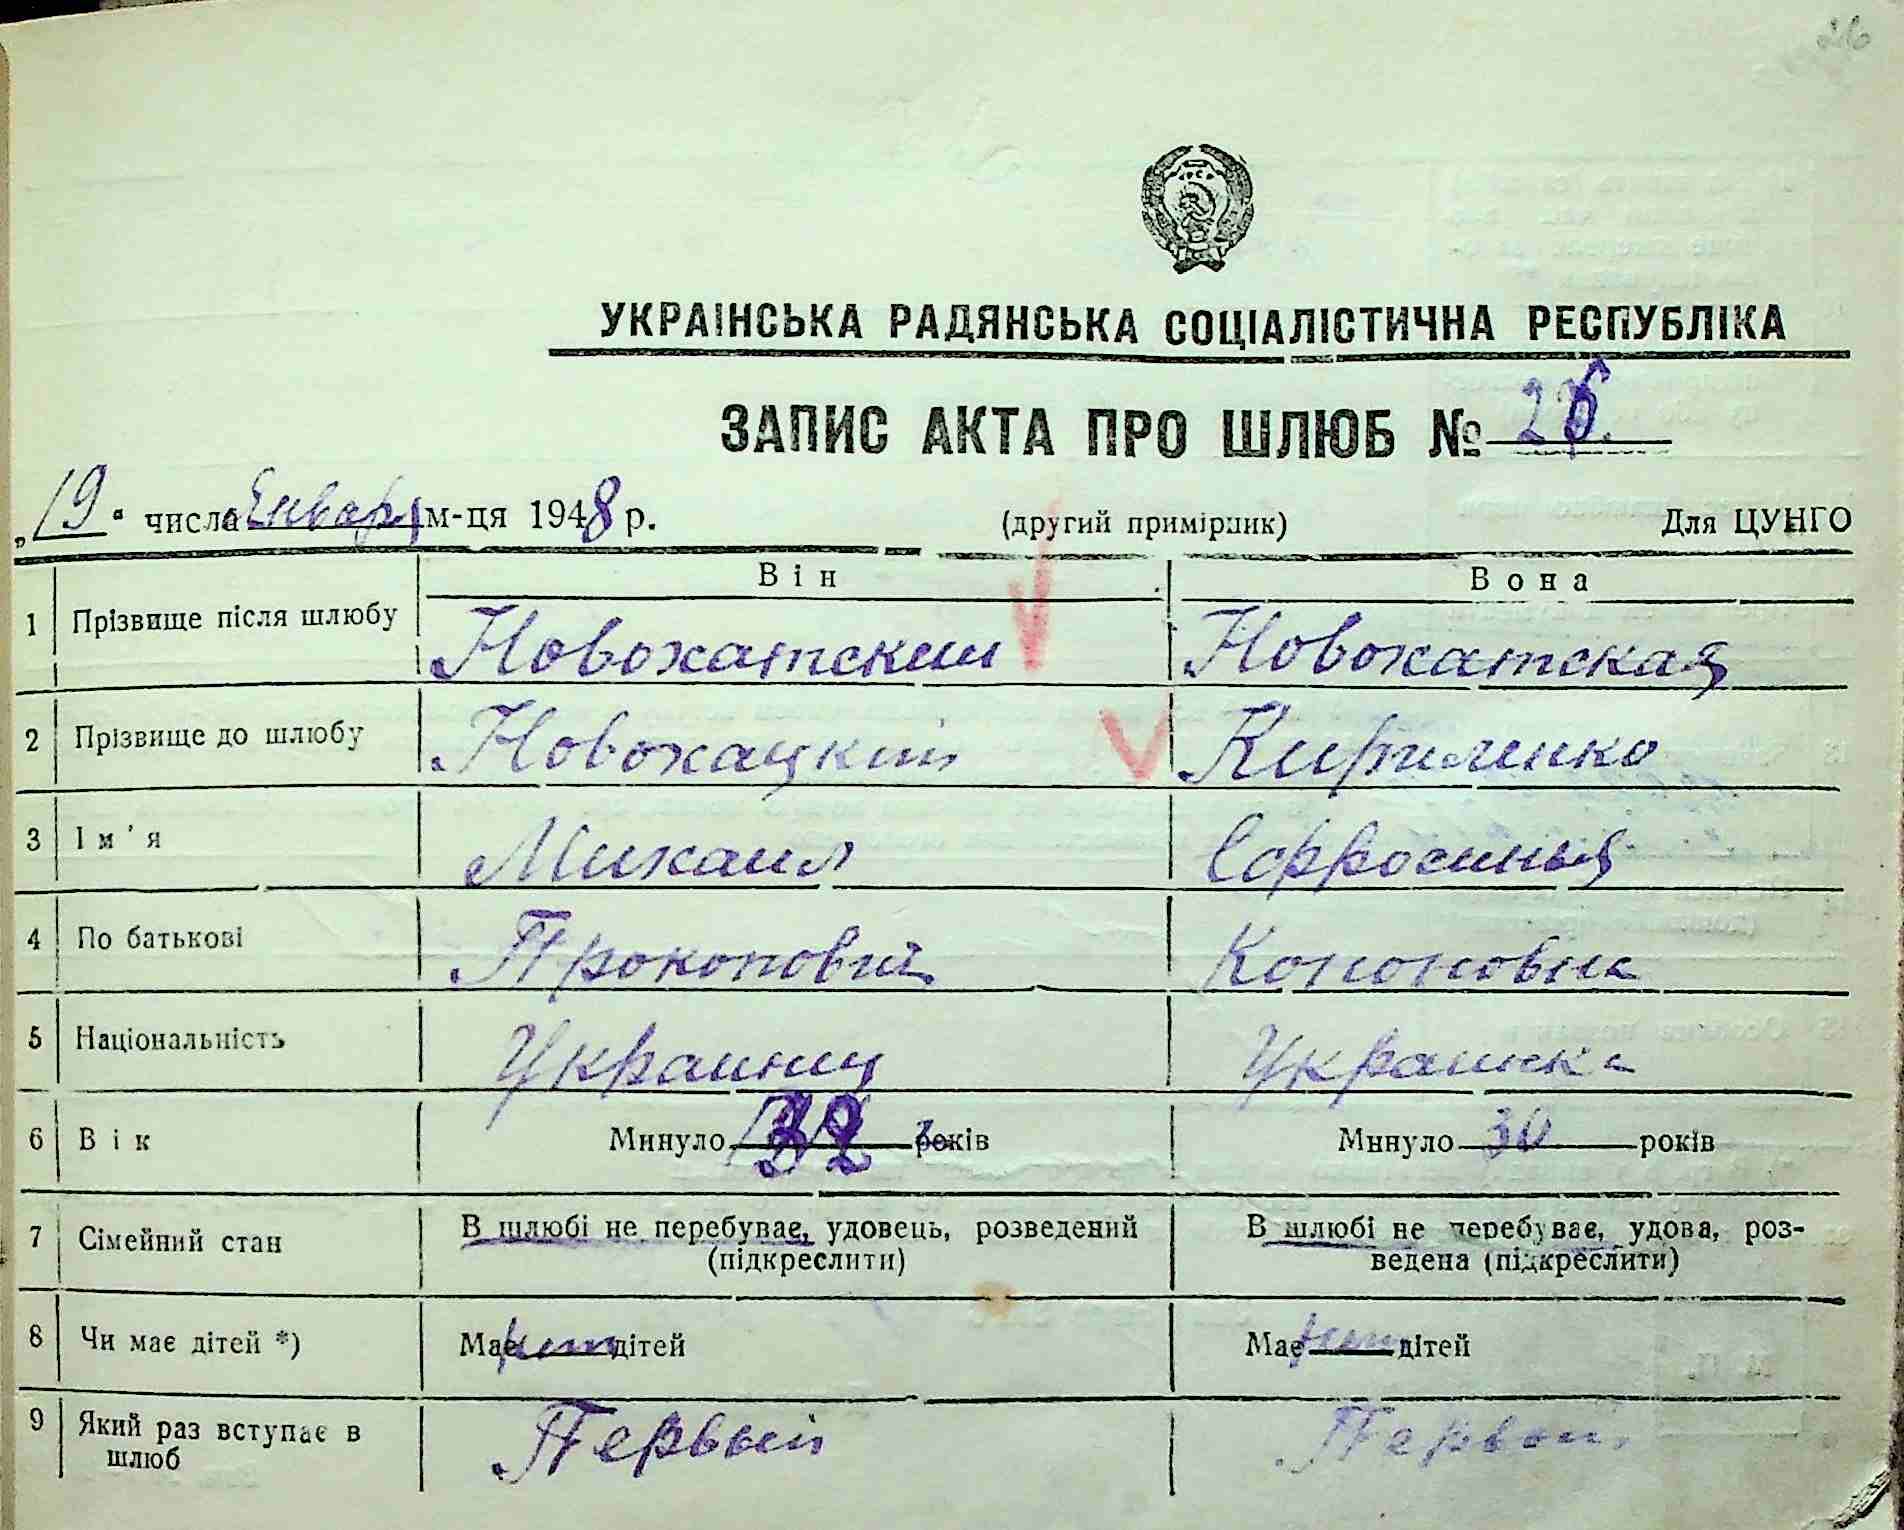 26
УКРАІНСЬКА РАДЯНСЬКА СОЦІАЛІСТИЧНА РЕСПУБЛІКА
ЗАПИС АКТА ПРО ШЛЮБ № 26.
„19" числа Января м-ця 1948 р. (другий примірник) Для ЦУНГО
Він Вона
1 Прізвище після шлюбу Новохатский Новохатская
2 Прізвище до шлюбу Новохацкий Кириленко
3 Ім'я Михаил Ефросинья
4 По батькові Прокопович Кононовна
5 Національність Украинец Украинка
6 Вік Минуло 32 років Минуло 30 років
7 Сімейний стан В шлюбі не перебуває, удовець, розведений В шлюбі не перебуває, удова, роз-
(підкреслити) ведена (підкреслити)
8 Чи має дітей *) Має нет дітей Має нет дітей
9 Який раз вступає в Первый Первый
шлюб